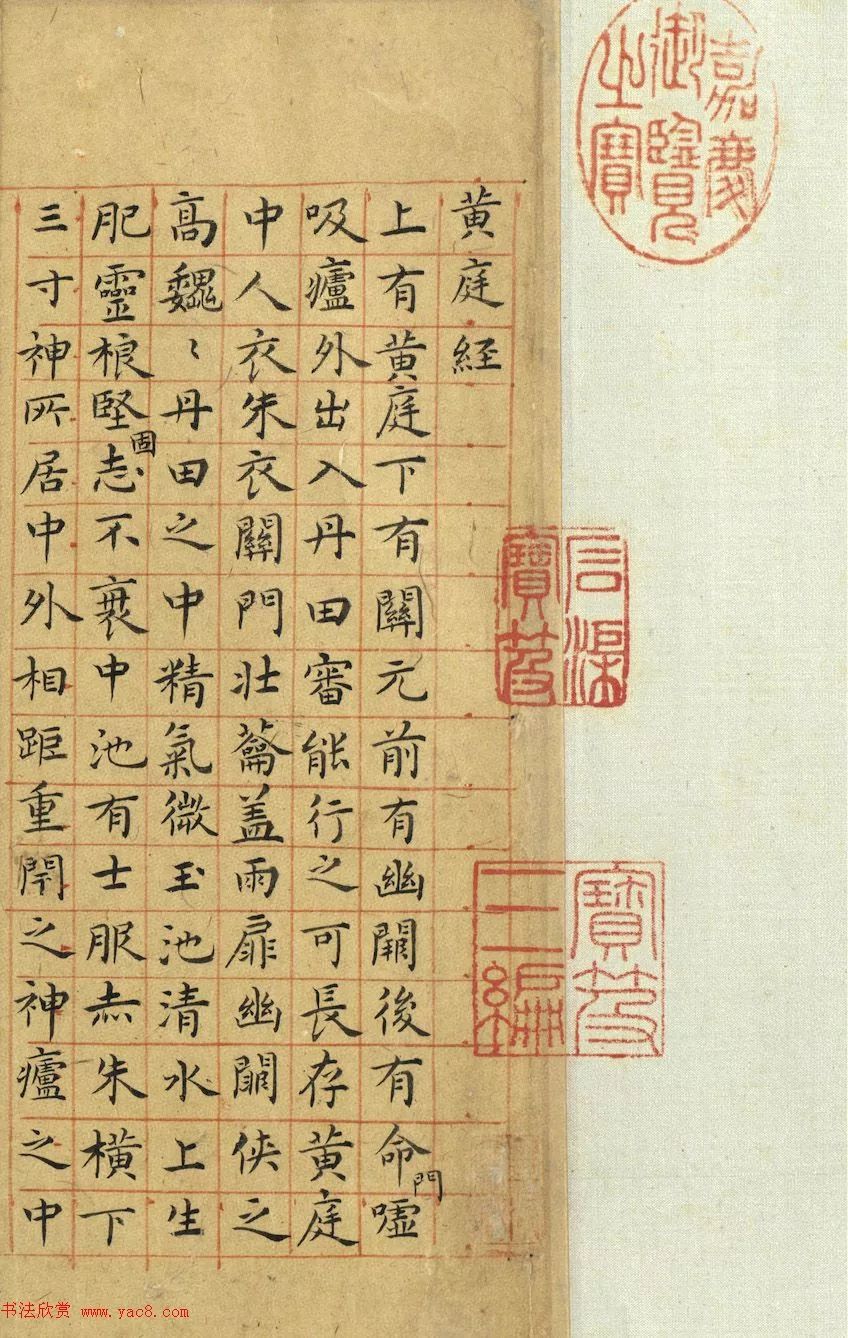 嘉慶御覽之寶
石渠寶笈
寶笈三編
黄庭経
上有黄庭下有關元前有幽闕後有命門嘘
吸廬外出入丹田審能行之可長存黄庭
中人衣朱衣關門壮蘥盖兩扉幽闕侠之
高魏〻丹田之中精氣微玉池清水上生
肥靈根堅固志不衰中池有士服赤朱横下
三寸神所居中外相距重閇之神廬之中
书法欣赏 www.yac8.com